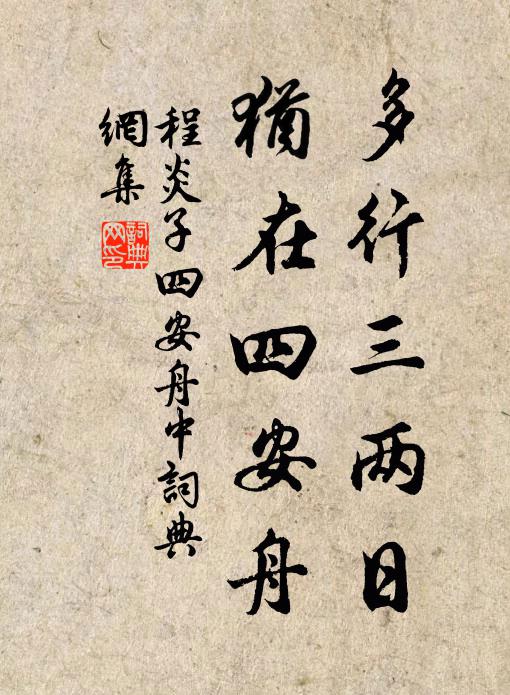 多行三两日
猶在四安舟
程炎子四安舟中詞典
網集
詞典网印